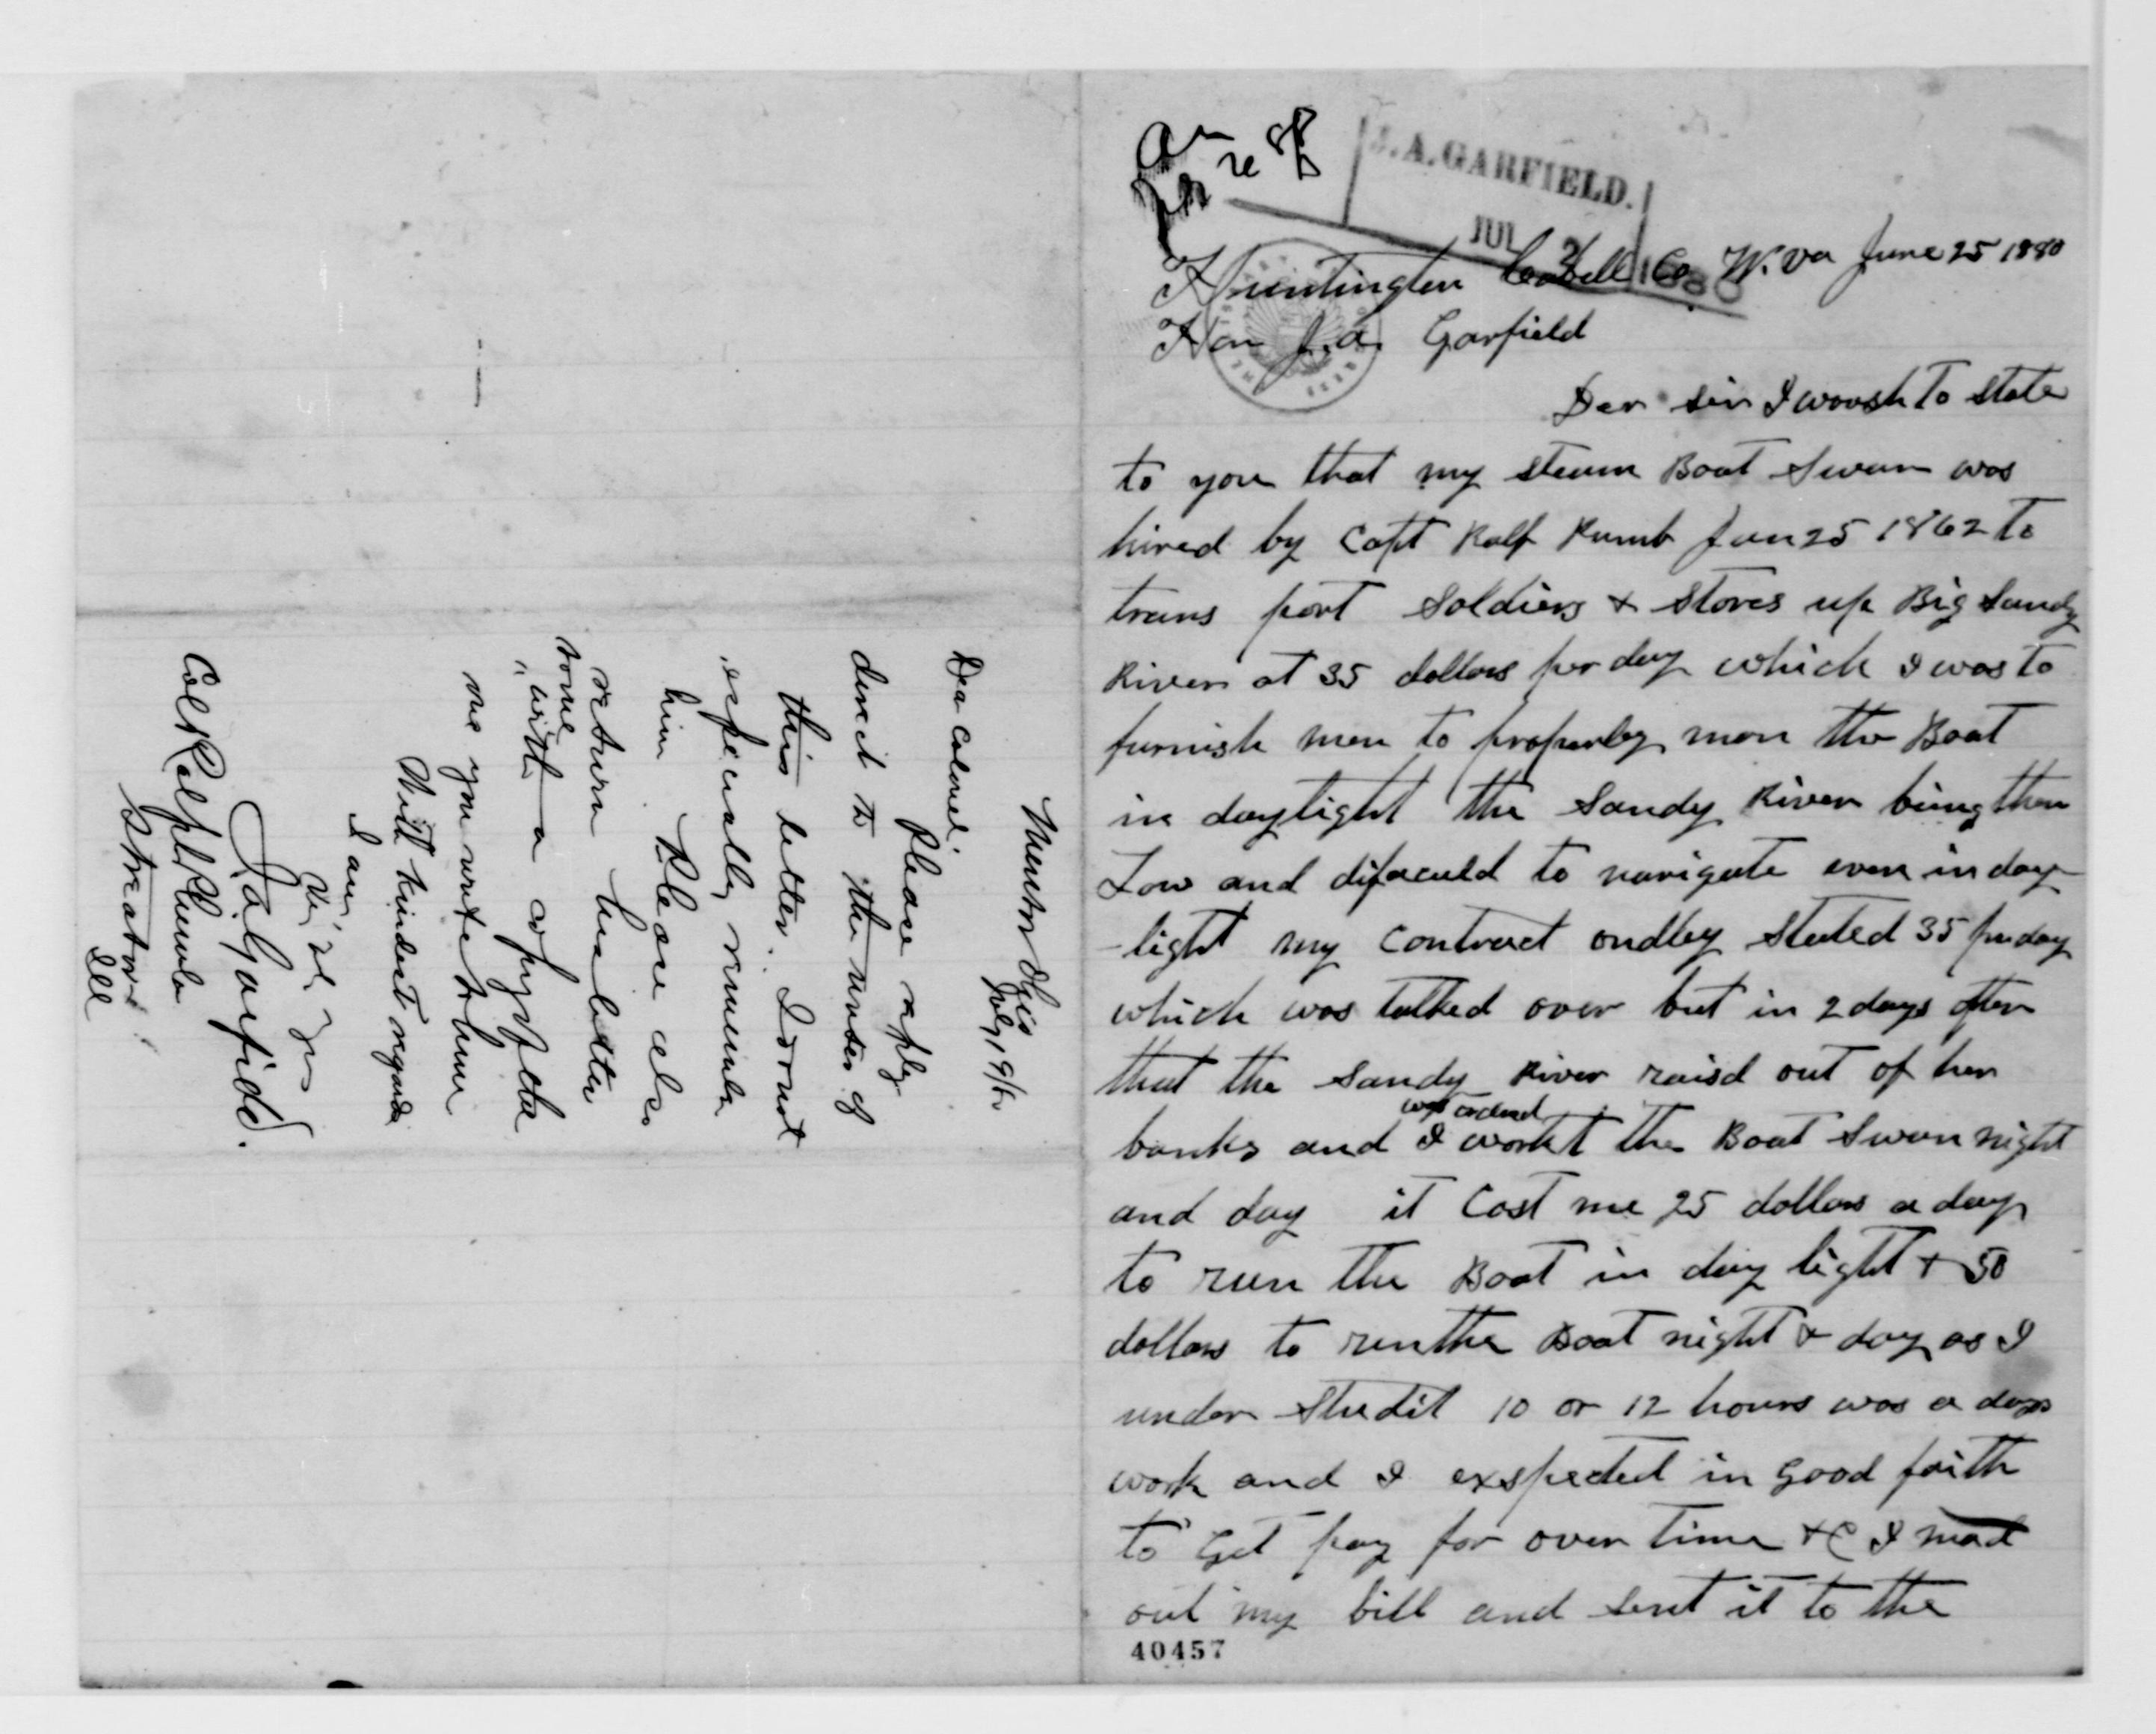 an
J. A. GARFIELD.
JUL 3 1880
Huntington Cabell Co W. va June 25 1880
Hon J. A. Garfield
Der sir I woush to state
to you that my steam Boat Swan was
hired by Capt Ralf Plumb Jan 25 1862 to
trans port Soldiers & stores up Big Sandy
River at 35 dollars per day which I was to
furnish men to properley man the Boat
in daylight the Sandy River being then
Low and difaculd to navigate even in day-
-light my contract ondley stated 35 per day
which was talked over but in 2 days after
that the Sandy River raisd out of her
was orderd
banks and I workt the Boat Swan night
and day it Cost me 25 dollars a day
to run the Boat in day light & 50
dollars to run the Boat night & day as I
under studit 10 or 12 hours was a days
work and I exspected in good faith
to Get pay for over time &C I mad
out my bill and sent it to the
40457
Mentor Ohio
July 9/80
Dear Colonel:
Please reply
direct to the writer of
this letter. I do not
especially remember
him Please also
return his letter
to me
with a copy of the
one you write to him
With kindest regards
I am,
J. A. Garfield.
Col Ralph Plumb
Streator
Ill